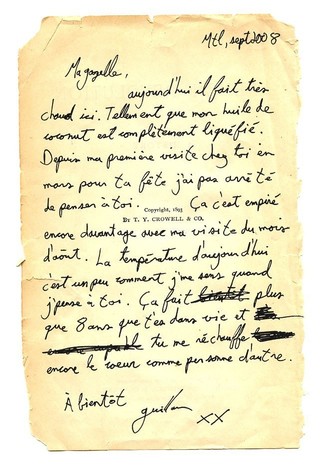 Mtl, sept 2008
Ma gazelle,
aujourd'hui il fait très
chaud ici. Tellement que mon huile de
coconut est complètement liquéfié.
Depuis ma première visite chez toi en
mars pour ta fête j'ai pas arrêté
de penser à toi. Ça c'est empiré
Copyright, 1893
By T. Y. CROWELL & CO.
encore davantage avec ma visite du mois
d'août. La température d'aujourd'hui
c'est un peu comment j'me sens quand
j'pense à toi. Ça fait plus
que 8 ans que t'es dans vie et
tu me réchauffe
encore le coeur comme personne d'autre.
À bientôt
XX